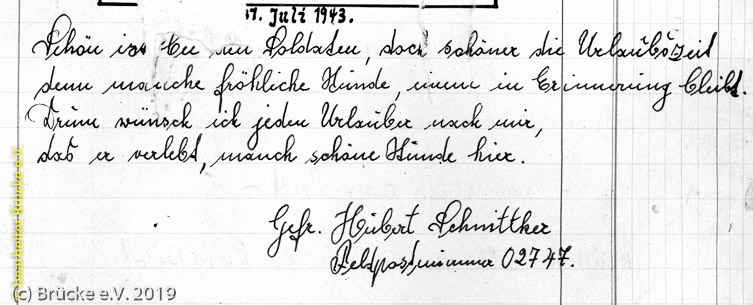 17. Juli 1943.
Schön ist Soldaten, doch schöner die Urlaubszeit
denn manche fröhliche Stunde, einem in Erinnerung bleibt.
Drum wünsch ich jeden Urlauber nach mir,
das er verlebt, manch schöne Stunde hier.
Gefr. Hubert Schnittker
Feldpostnummer 02747.
Brücke e.V.
(c) Brücke e.V. 2019